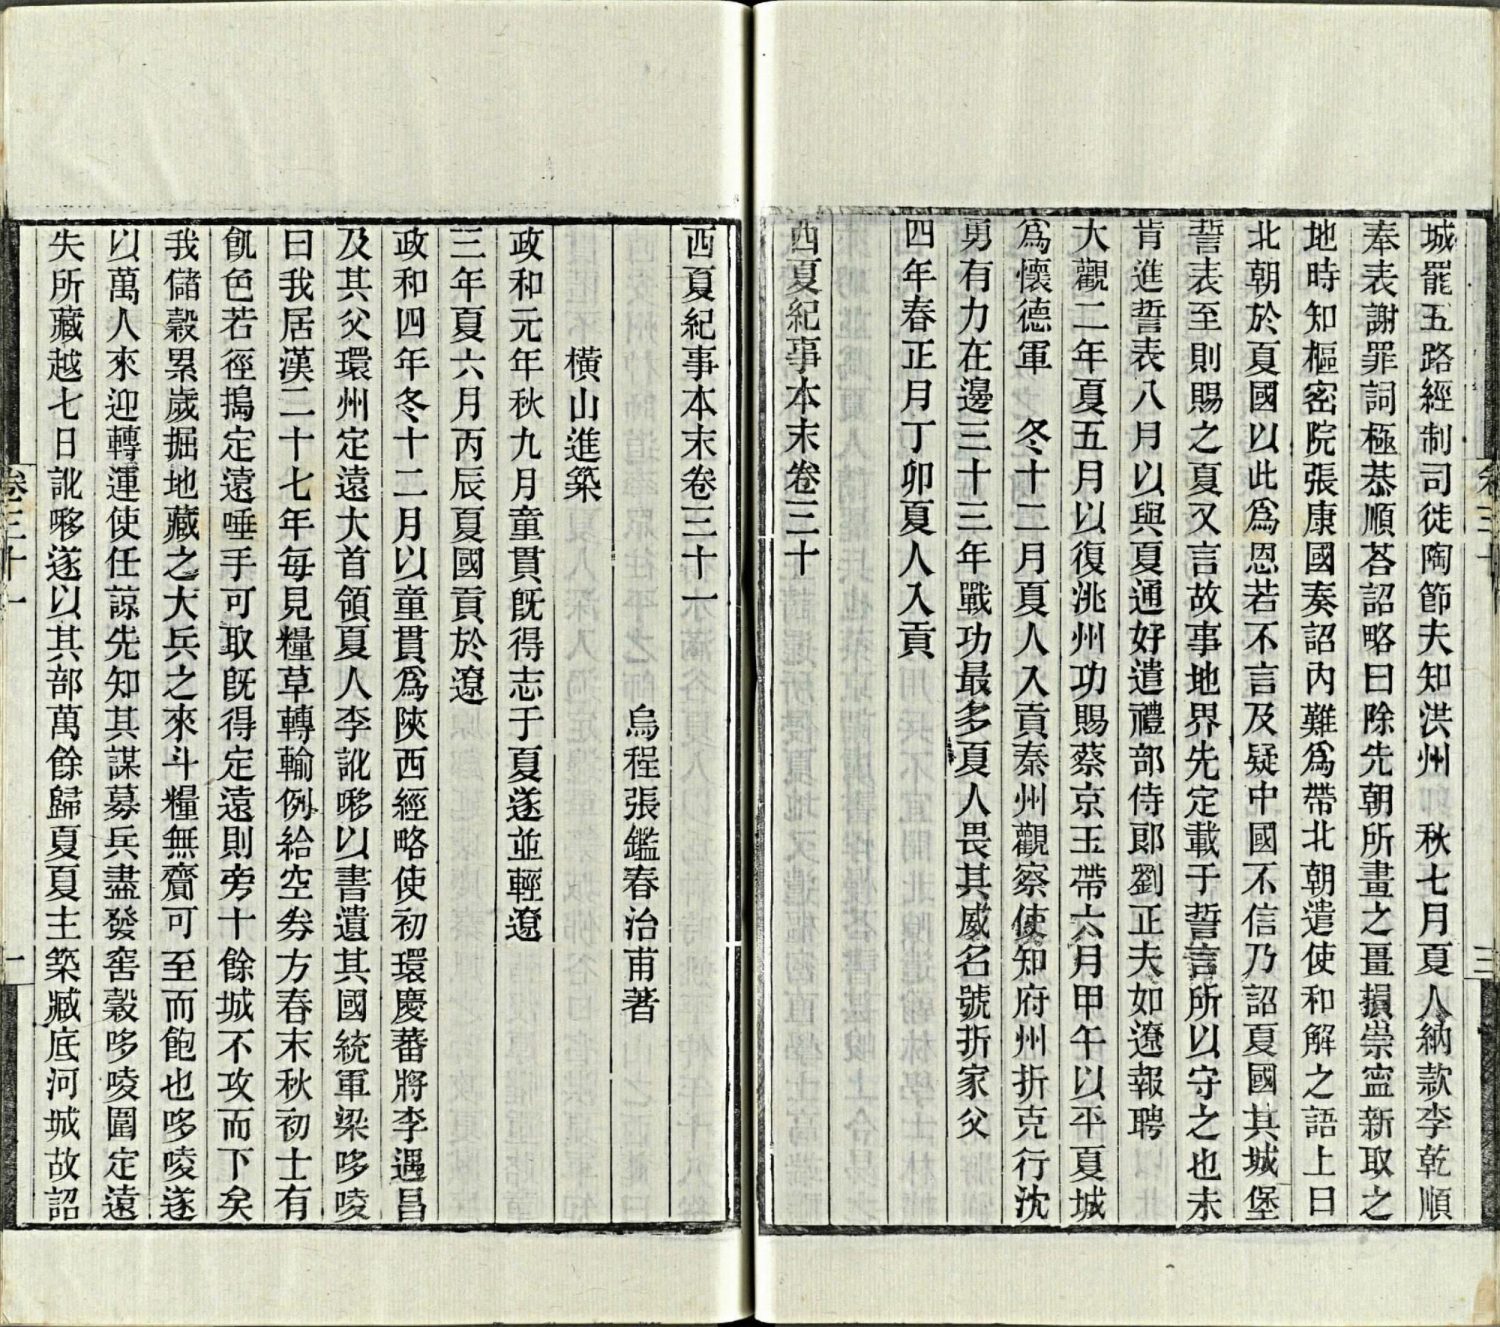 城罷五路經制司徒陶節夫知洪州　秋七月夏人納款李乾順
奉表謝罪詞極恭順荅詔略曰除先朝所畫之畺損崇寍新取之
地時知樞密院張康國奏詔內難爲帶北朝遣使和解之語上曰
北朝於夏國以此爲恩若不言及疑中國不信乃詔夏國其城堡
誓表至則賜之夏又言故事地界先定載于誓言所以守之也未
肯進誓表八月以與夏通好遣禮部侍郎劉正夫如遼報聘
大觀二年夏五月以復洮州功賜蔡京玉帶六月甲午以平夏城
爲懷德軍　冬十二月夏人入貢秦州觀察使知府州折克行沈
勇有力在邊三十三年戰功最多夏人畏其威名號折家父
四年春正月丁卯夏人入貢
西夏紀事本末卷三十
卷三十
三
西夏紀事本末卷三十一
烏程張鑑春治甫著
橫山進築
政和元年秋九月童貫旣得志于夏遂並輕遼
三年夏六月丙辰夏國貢於遼
政和四年冬十二月以童貫爲陝西經略使初環慶蕃將李遇昌
及其父環州定遠大首領夏人李訛㖼以書遺其國統軍梁哆唛
曰我居漢二十七年每見糧草轉輸例給空劵方春末秋初士有
飢色若徑搗定遠唾手可取旣得定遠則旁十餘城不攻而下矣
我儲穀累歲掘地藏之大兵之來斗糧無齎可至而飽也哆唛遂
以萬人來迎轉運使任諒先知其謀募兵盡發窖穀哆唛圍定遠
失所藏越七日訛㖼遂以其部萬餘歸夏夏主築臧底河城故詔
卷三十一
一